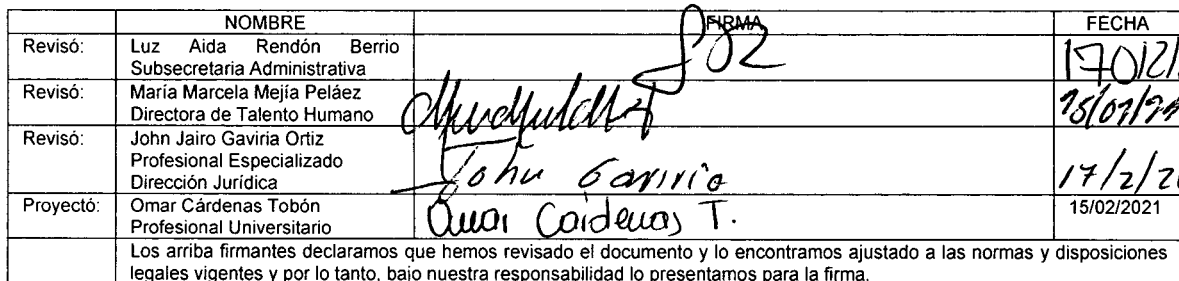 NOMBRE FIRMA FECHA
Revisó: Luz Aida Rendón Berrio
Subsecretaria Administrativa
Revisó: María Marcela Mejía Peláez
Directora de Talento Humano
Revisó: John Jairo Gaviria Ortiz
Profesional Especializado
Dirección Jurídica
John Gaviria 17/2/2
Proyectó: Omar Cárdenas Tobón
Profesional Universitario
Omar Cárdenas T. 15/02/2021
Los arriba firmantes declaramos que hemos revisado el documento y lo encontramos ajustado a las normas y disposiciones
legales vigentes y por lo tanto, bajo nuestra responsabilidad lo presentamos para la firma.